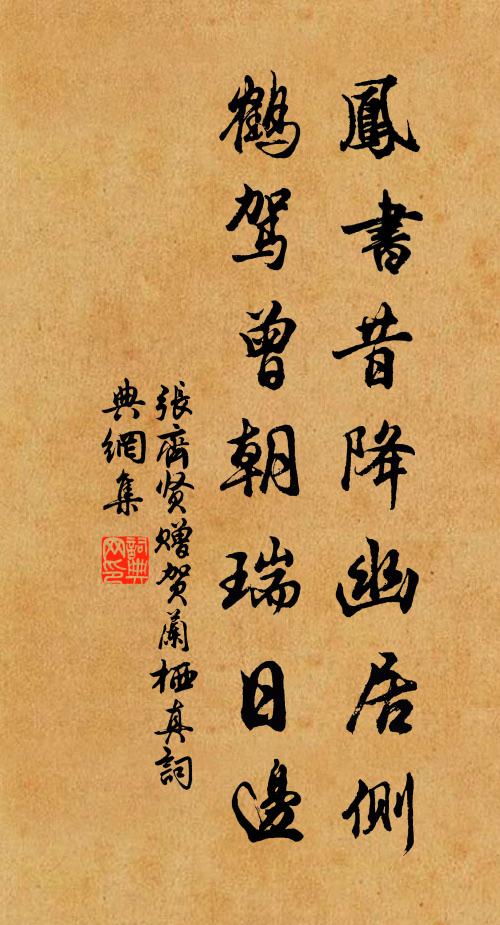 鳳書昔降幽居側
鶴駕曾朝瑞日邊
張齊贤贈贺蘭栖真詞
典網集
詞典
网印